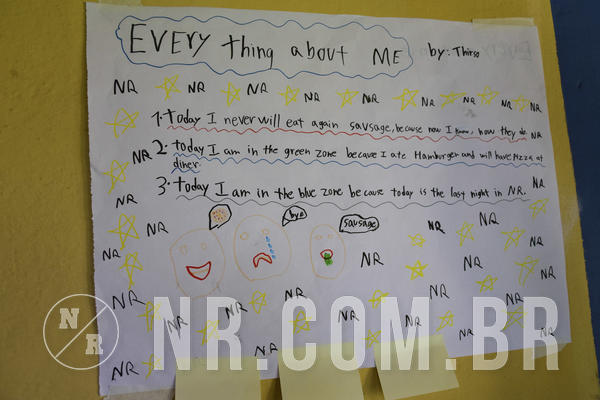 EVERY thing about ME by: Thirso
NR NR NR NR NR NR NR NR NR NR
1. Today I never will eat again savsage, because now I know, how they do. NR
NR 2. today I am in the green zone becavse I ate Hamburger and will have pizza at
diner.
3. today I am in the blue zone becavse today is the last night in NR. NR
NR
NR bye savsage NR NR
NR NR NR
NR NR NR
NR NR NR NR NR NR
NR NR NR NR
NR NR
NR
NR.COM.BR